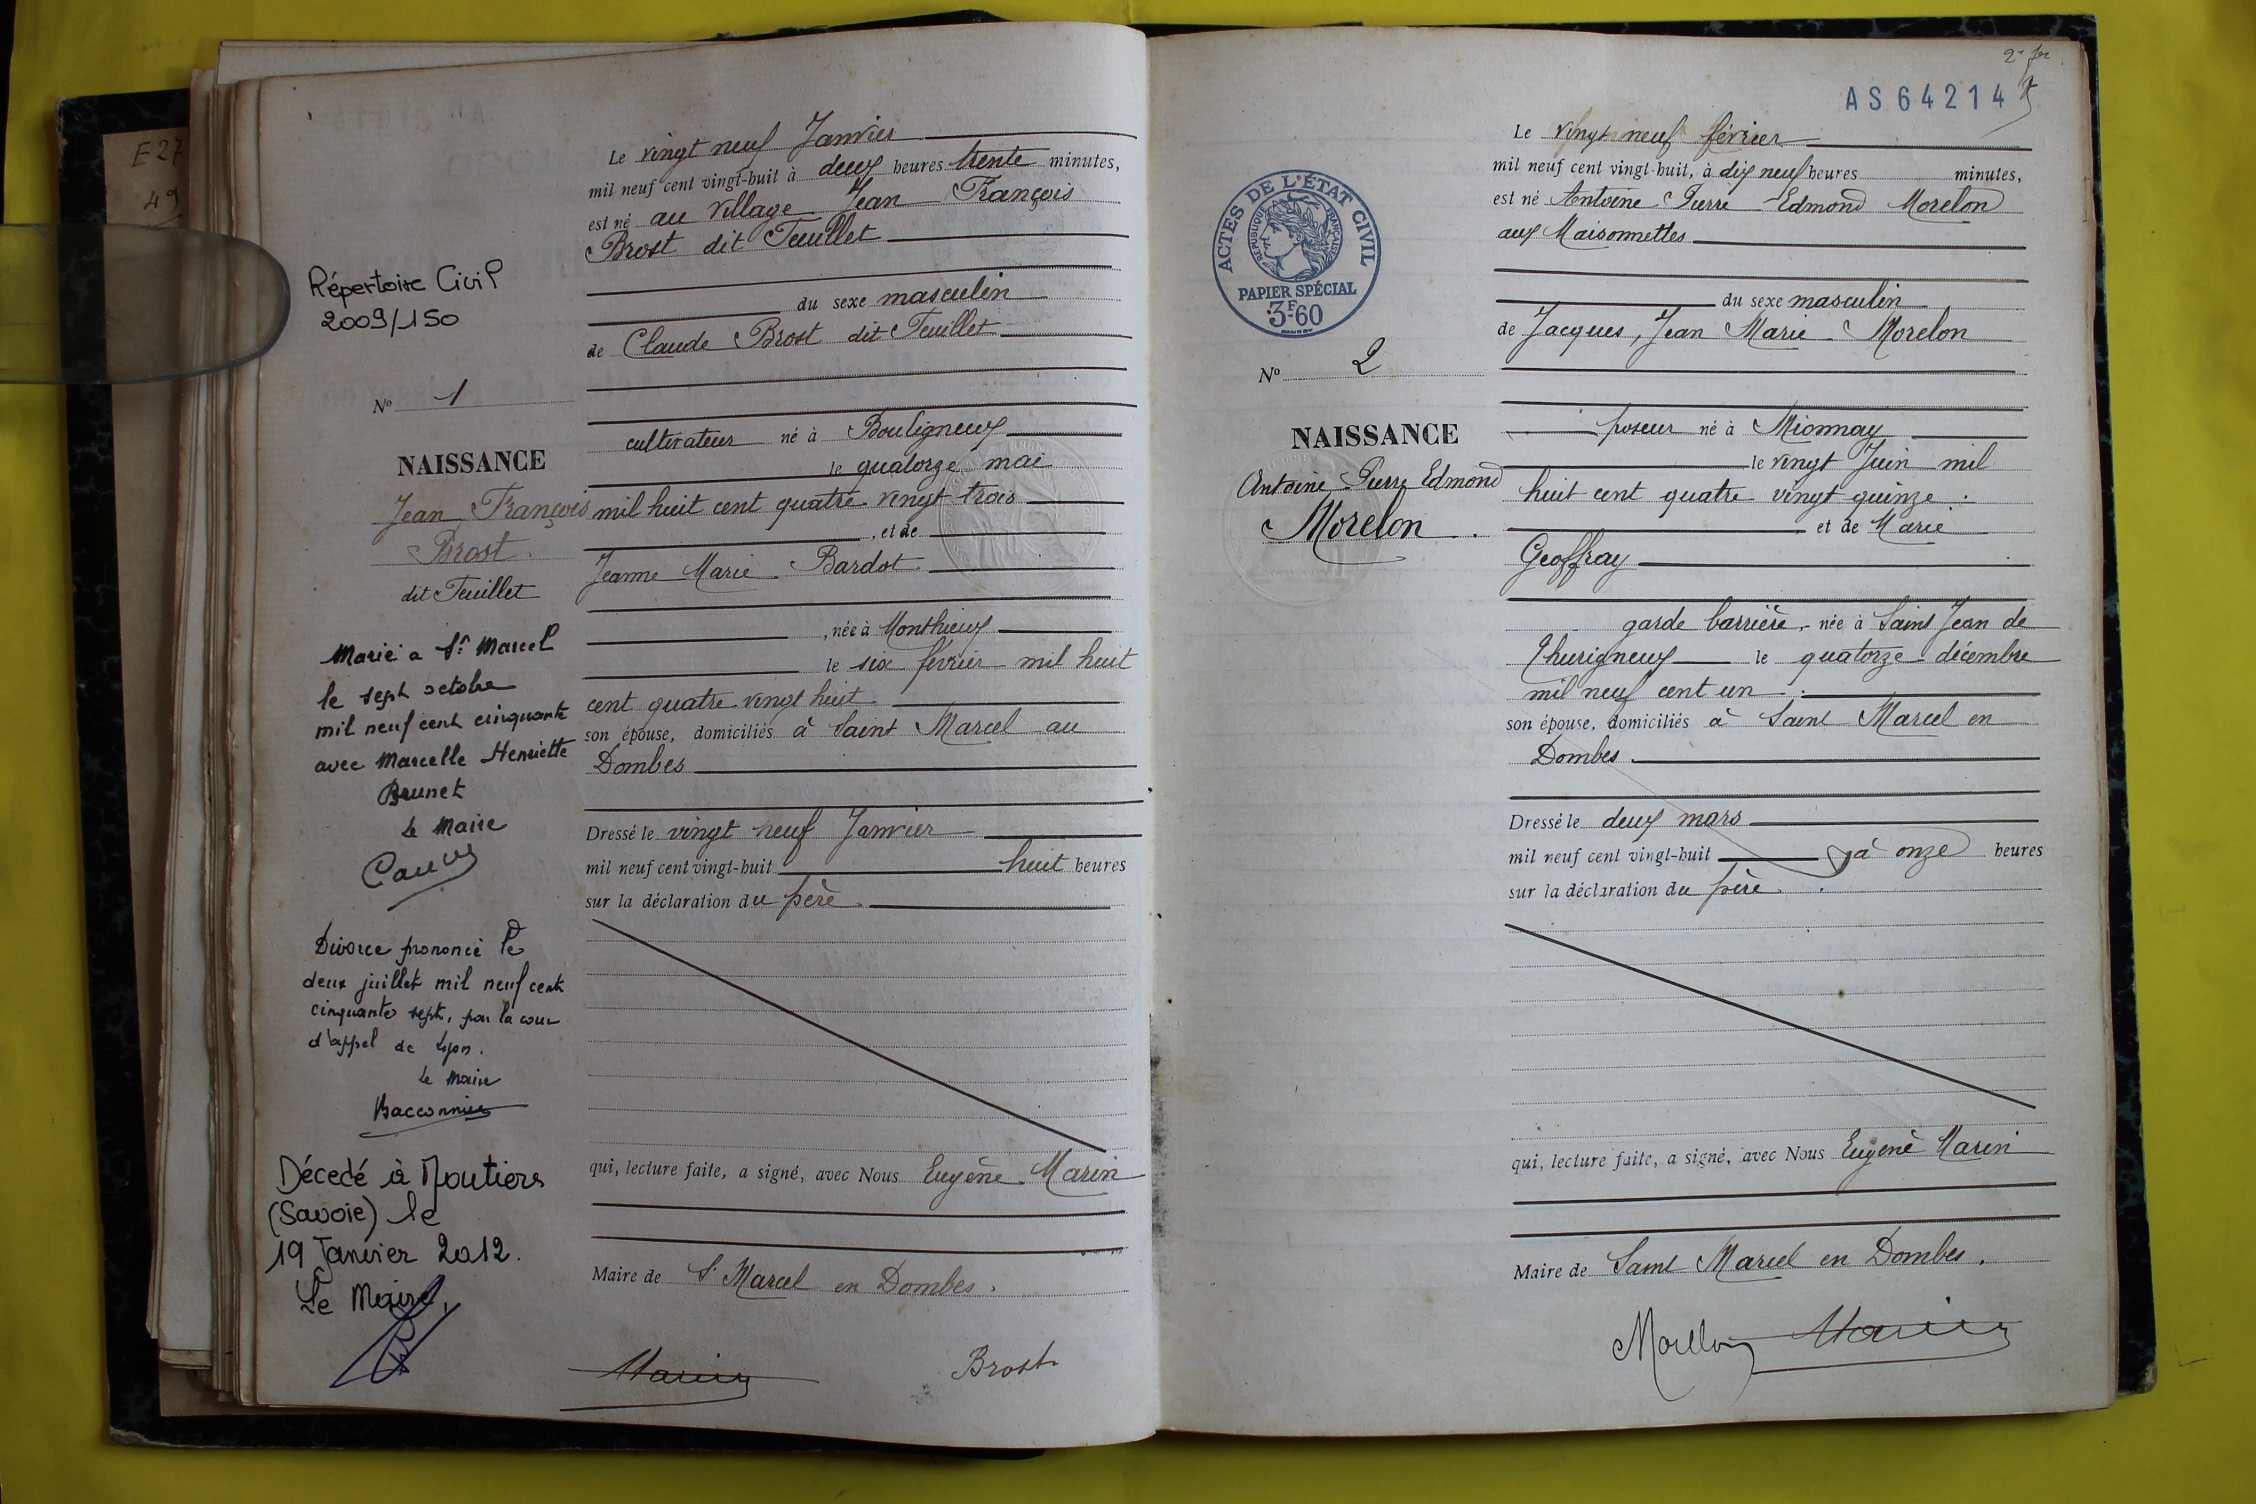 E27
49
Répertoire Civil
2009/150
Nº 1
NAISSANCE
Jean François
Brost
dit Feuillet
Marié a St Marcel
le sept octobre
mil neuf cent cinquante
avec Marcelle Henriette
Brunet
Le Maire
Divorce prononcé le
deux juillet mil neuf cent
cinquante sept, par la cour
d'appel de Lyon.
Le Maire
Bacconnier
Décedé à Moutiers
(Savoie) le
19 Janvier 2012.
Le Maire,
Le vingt neuf Janvier
mil neuf cent vingt-huit à deux heures trente minutes,
est né au Village Jean François
Brost dit Feuillet
du sexe masculin
de Claude Brost dit Feuillet
cultivateur né à Bouligneux
le quatorze mai
mil huit cent quatre vingt trois
, et de
Jeanne Marie Bardot
, née à Monthieux
le six février mil huit
cent quatre vingt huit
son épouse, domiciliés à Saint Marcel au
Dombes
Dressé le vingt neuf Janvier
mil neuf cent vingt-huit huit heures
sur la déclaration du père
qui, lecture faite, a signé, avec Nous Eugène Marin
Maire de St Marcel en Dombes.
Marin Brost
2e fer
AS 64214
ACTES DE L'ÉTAT CIVIL
RÉPUBLIQUE FRANÇAISE
PAPIER SPÉCIAL
3F60
Nº 2
NAISSANCE
Antoine Pierre Edmond
Morelon
Le vingt neuf février
mil neuf cent vingt-huit, à dix neuf heures minutes,
est né Antoine Pierre Edmond Morelon
aux Maisonnettes
du sexe masculin
de Jacques, Jean Marie Morelon
poseur né à Mionnay
le vingt Juin mil
huit cent quatre vingt quinze.
et de Marie
Geoffray
garde barrière, née à Saint Jean de
Thurigneux le quatorze décembre
mil neuf cent un.
son épouse, domiciliés à Saint Marcel en
Dombes.
Dressé le deux mars
mil neuf cent vingt-huit à onze heures
sur la déclaration du père.
qui, lecture faite, a signé, avec Nous Eugène Marin
Maire de Saint Marcel en Dombes.
Morellon Marin